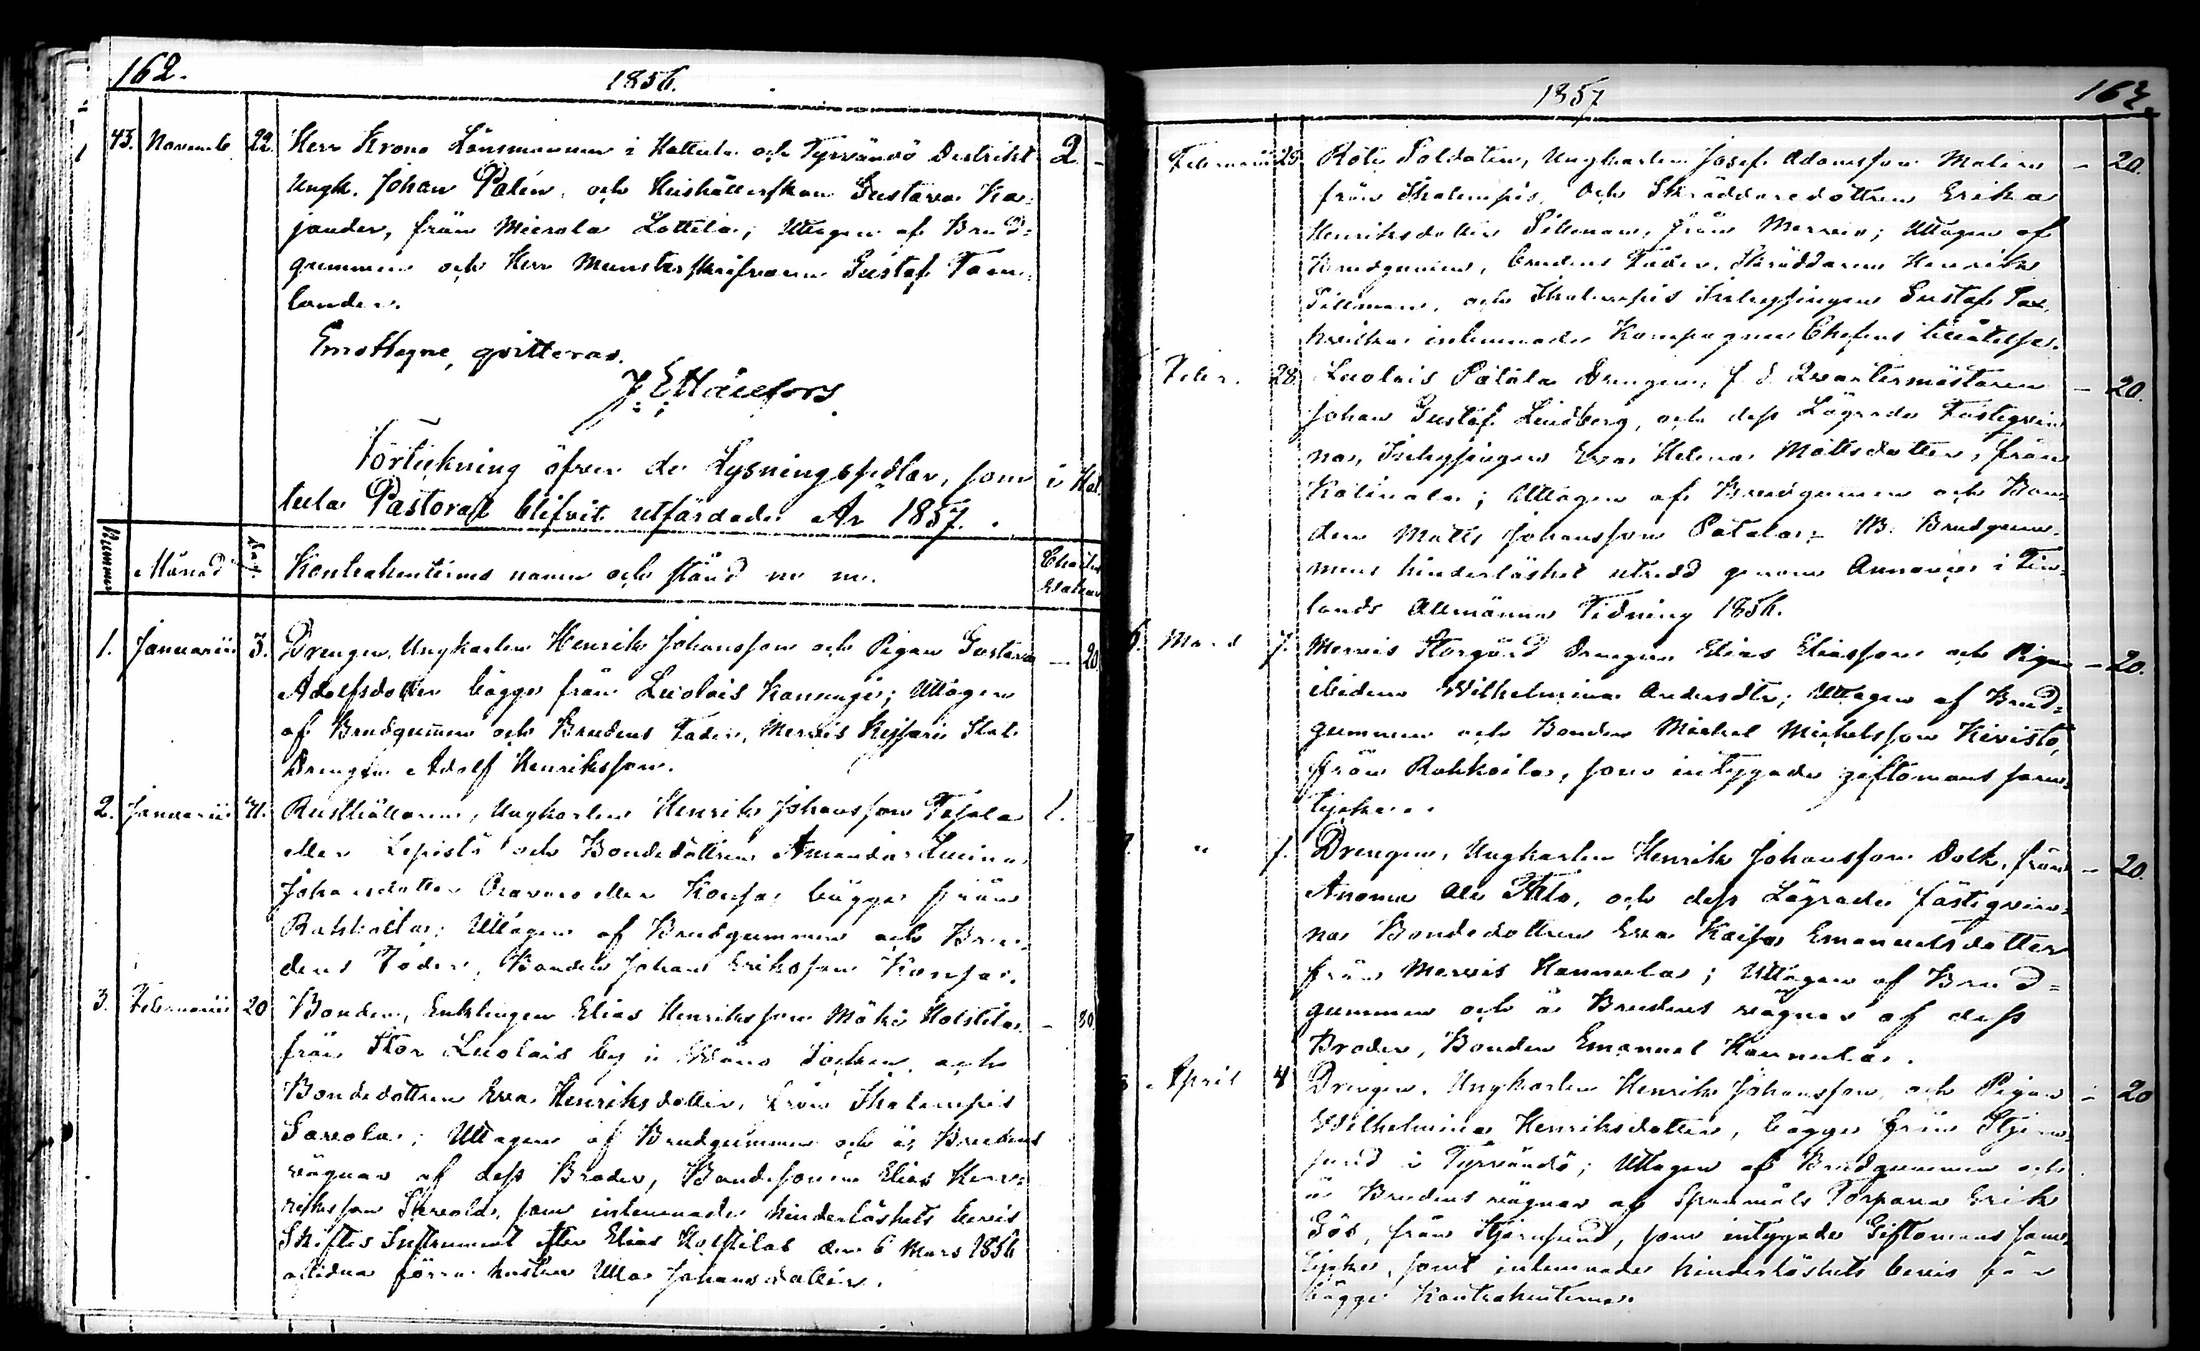 162.
1856.
43. Novemb. 22. Herr Krono Länsmannen i Hattula och Tyrvändö Distrikt 2. -
Ungk. Johan Palén, och Hushållerskan Gustava Ka-
jander, från Mierola Lottila; Uttagen af Brud-
gummen och Herr Munsterskrifvaren Gustaf Tam-
lander.
Emottagne, qvitteras.
J. E. Hällfors.
Förteckning öfver de Lysningssedlar, som i Hat-
tula Pastorat blifvit utfärdade År 1857.
Nummer Månad Dag. Kontrahenternes namn och stånd m. m.
1. Januarii 3. Drengen, Ungkarlen Henrik Johansson och Pigan Gustava — 20.
Adolfsdotter bägge från Luolais ; Uttagen
af Brudgummen och Brudens Fader, Mervis Stat
Drengen Adolf Henriksson.
2. Januarii 31. Rusthållaren, Ungkarlen Henrik Johansson 1.
eller Lepistö och Bondedottren Amanda Lovina
Johansdotter eller bägge från
Rahkoila; Uttagen af Brudgummen och Bru-
dens Fader, Bonden Johan Eriksson
3. Februarii 20 Bonden, Enklingen Elias Henriksson Mäki Holstila — 80.
från Stor Luolais by i Wånå Socken, och
Bondedottren Eva Henriksdotter, från Skalempis
; Uttagen af Brudgummen och å Brudens
vägnar af dess Broder, Bondesonen Elias Hen-
riksson , som inlemnade hinderlöshets bevis
Skiftes Instrument efter Elias Holstilas den 6 Mars 1856
aflidna förra hustru Ulla Johansdotter.
1857
163.
Februarii 25 Rote Soldaten, Ungkarlen Josef Adamsson Malin — 20.
från Skalempis, och Skräddaredottren Erika
Henriksdotter Sillman, från Mervis; Uttagen af
Brudgummen, brudens Fader, Skräddaren Henrik
Sillman, och Skalempis Inhysingen Gustaf
hvilka inlemnade Kompagnie Chefens tillåtelse.
Febr. 28 Luolais Pätälä Drengen, f. d. Qvartermästaren — 20.
Johan Gustaf Lindberg, och dess Lägrade Fästeqvin-
na, Inhysingen Eva Helena Mattsdotter, från
Katinala; Uttagen af Brudgummen och Bon-
den Matts Johansson Pätälä; NB. Brudgum-
mens hinderlöshet utredd genom Annonce i Fin-
lands Allmänna Tidning 1856.
6. Mars 7. Mervis Storgård Drengen Elias Eliasson och Pigan — 20.
ibidem Wilhelmina Andersdtr; Uttagen af Brud-
gummen och Bonden Michel Michelsson Kivistö,
från Rahkoila, som intygade giftomans sam-
tycke.
7. " 7. Drengen, Ungkarlen Henrik Johansson Dolk, från — 20.
Anoma , och dess Lägrade fästeqvin-
na Bondedottren Eva Kaisa Emanuelsdotter
från Mervis Hannula; Uttagen af Brud-
gummen och å Brudens vägnar af dess
Broder, Bonden Emanuel Hannula.
8 April 4 Drengen, Ungkarlen Henrik Johansson, och Pigan — 20
Wilhelmina Henriksdotter, bägge från Stjern-
sund i Tyrvändö; Uttagen af Brudgummen och
å Brudens vägnar af Spanmåls Torparen Erik
Gös, från Stjernsund, som intygade Giftomans sam-
tycke, samt inlemnade hinderlöshets bevis för
bägge Kontrahenterna.